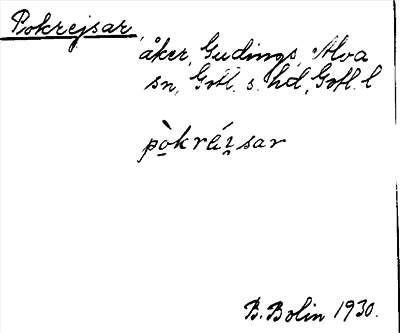 Pokrejsar,
åker, Gudings, Alva
sn, Gotl. s. hd, Gotl. l
pò̱kráı̯sar
B. Bolin 1930.